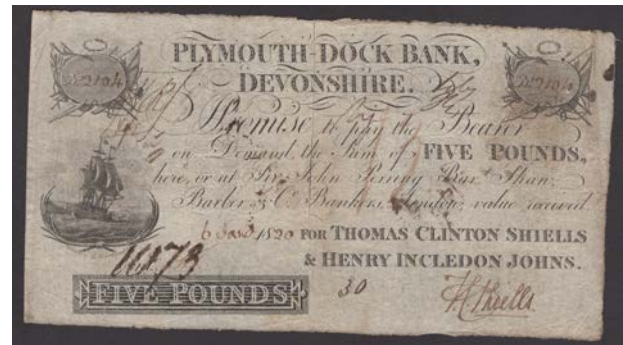 PLYMOUTH-DOCK BANK,
DEVONSHIRE.
No 2104 No 2104
Promise to pay the Bearer
on Demand, the Sum of FIVE POUNDS,
here, or at Sir John Perring Bart Shaw,
Barber & Co Bankers, London, value received
6 Jany 1820 FOR THOMAS CLINTON SHIELLS
& HENRY INCLEDON JOHNS.
1673
FIVE POUNDS 30 Shiells